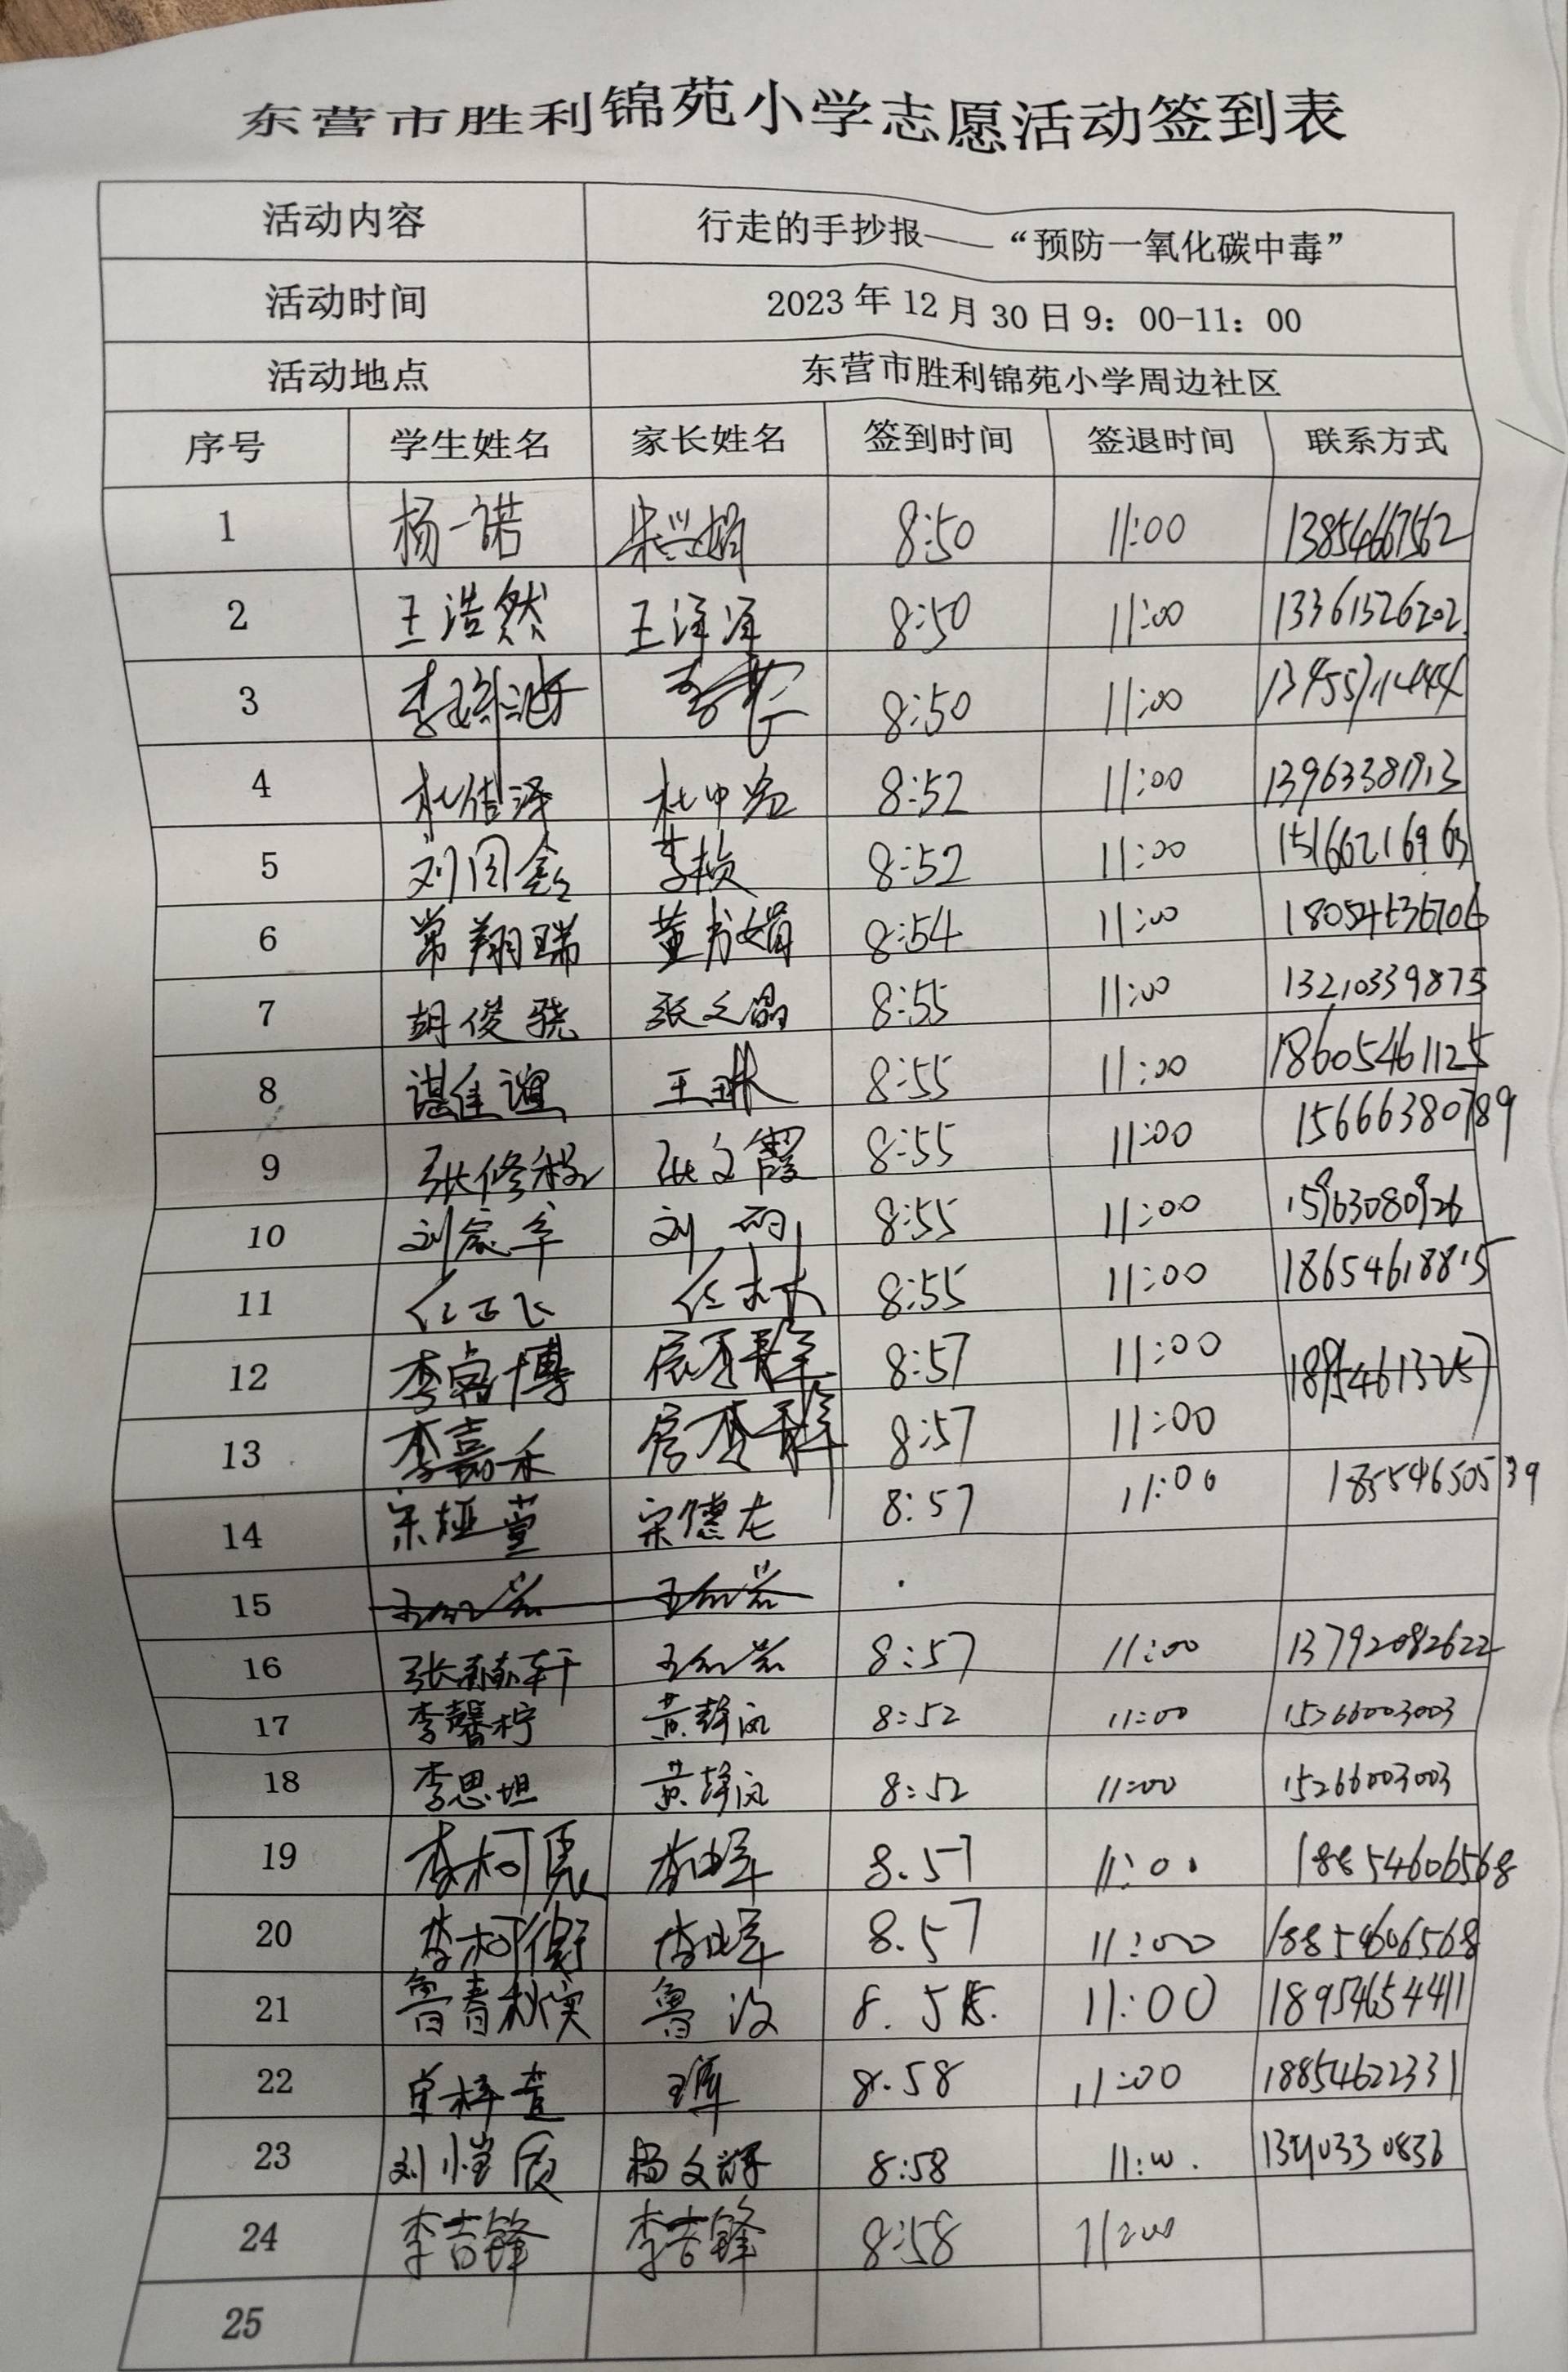 东营市胜利锦苑小学志愿活动签到表
活动内容 行走的手抄报——“预防一氧化碳中毒”
活动时间 2023年12月30日9：00-11：00
活动地点 东营市胜利锦苑小学周边社区
序号 学生姓名 家长姓名 签到时间 签退时间 联系方式
1 杨一诺 朱兴娟 8:50 11:00 13854667562
2 王浩然 8:50 11:00 13361526202
3 8:50 11:00
4 8:52 11:00
5 李桢 8:52 11:00 15166216963
6 常翔瑞 董书娟 8:54 11:00
7 胡俊骁 张文晶 8:55 11:00 13210339873
8 谌佳谊 王琳 8:55 11:00 18605461125
9 张修程 张文霞 8:55 11:00 15666380789
10 8:55 11:00 15963080926
11 8:55 11:00 18654618815
12 李卓博 8:57 11:00
13 李嘉禾 8:57 11:00
14 宋桠萱 宋德龙 8:57 11:00 18554650539
15
16 8:57 11:00 13792082622
17 李馨柠 黄静波 8:52 11:00 15266003003
18 李思坦 黄静波 8:52 11:00 15266003003
19 8.57 11:00 18854606568
20 李柯衡 8.57 11:00 18854606568
21 鲁春秋实 鲁波 11:00 18954654411
22 8.58 11:00 18854622331
23 刘恺辰 杨文辉 8:58 11:00
24 李吉锋 李吉锋 8:58 11:00
25